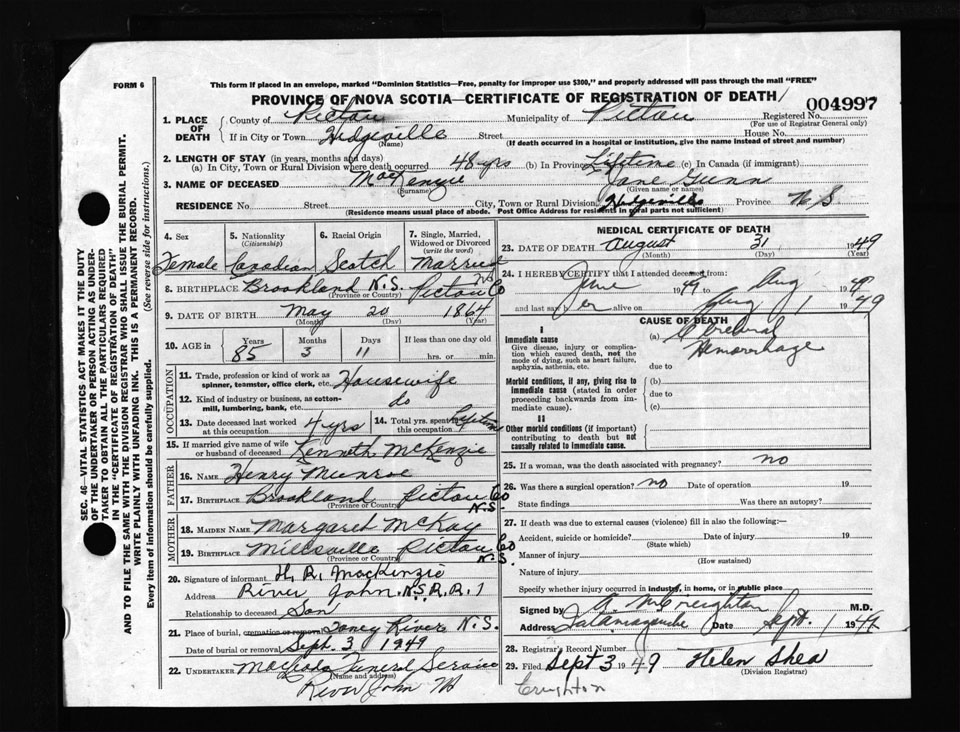 FORM 6
This form if placed in an envelope, marked "Dominion Statistics—Free, penalty for improper use $300," and properly addressed will pass through the mail "FREE"
PROVINCE OF NOVA SCOTIA—CERTIFICATE OF REGISTRATION OF DEATH
004997
1. PLACE OF DEATH
County of Pictou Municipality of Pictou Registered No.
(For use of Registrar General only)
If in City or Town Hedgeville Street House No.
(Name) (If death occurred in a hospital or institution, give the name instead of street and number)
2. LENGTH OF STAY (in years, months and days)
(a) In City, Town or Rural Division where death occurred 48 yrs (b) In Province Lifetime (c) In Canada (if immigrant)
3. NAME OF DECEASED MacKenzie Jane Gunn
(Surname) (Given name or names)
RESIDENCE No. Street City, Town or Rural Division Hedgeville Province N.S.
(Residence means usual place of abode. Post Office Address for residents in rural parts not sufficient)
SEC. 46—VITAL STATISTICS ACT MAKES IT THE DUTY
OF THE UNDERTAKER OR PERSON ACTING AS UNDER-
TAKER TO OBTAIN ALL THE PARTICULARS REQUIRED
IN THE "CERTIFICATE OF REGISTRATION OF DEATH"
AND TO FILE THE SAME WITH THE DIVISION REGISTRAR WHO SHALL ISSUE THE BURIAL PERMIT.
WRITE PLAINLY WITH UNFADING INK. THIS IS A PERMANENT RECORD.
Every item of information should be carefully supplied. (See reverse side for instructions.)
4. Sex 5. Nationality (Citizenship) 6. Racial Origin 7. Single, Married, Widowed or Divorced (write the word)
Female Canadian Scotch Married
8. BIRTHPLACE Brookland N.S. Pictou Co N.S.
(Province or Country)
9. DATE OF BIRTH May 20 1864
(Month) (Day) (Year)
10. AGE in Years Months Days If less than one day old
85 3 11 hrs. or min.
OCCUPATION
11. Trade, profession or kind of work as
spinner, teamster, office clerk, etc. Housewife
12. Kind of industry or business, as cotton-
mill, lumbering, bank, etc. do
13. Date deceased last worked at this occupation 4 yrs 14. Total yrs. spent in this occupation Lifetime
15. If married give name of wife
or husband of deceased Kenneth McKenzie
FATHER
16. NAME Henry Munroe
17. BIRTHPLACE Brookland Pictou Co N.S.
(Province or Country)
MOTHER
18. MAIDEN NAME Margaret McKay
19. BIRTHPLACE Millsville Pictou Co N.S.
(Province or Country)
20. Signature of informant H. R. MacKenzie
Address River John N.S. R.R. 1
Relationship to deceased Son
21. Place of burial, cremation or removal Toney River N.S.
Date of burial or removal Sept. 3 1949
22. UNDERTAKER Funeral Service
(Name and address)
River John NS
MEDICAL CERTIFICATE OF DEATH
23. DATE OF DEATH August 31 1949
(Month) (Day) (Year)
24. I HEREBY CERTIFY that I attended deceased from:
June 1949 to Aug 1949
and last saw her Aug 1 1949
CAUSE OF DEATH
I
Immediate cause
Give disease, injury or complica-
tion which caused death, not the
mode of dying, such as heart failure,
asphyxia, asthenia, etc.
(a) Cerebral
Hemorrhage
due to
Morbid conditions, if any, giving rise to
immediate cause (stated in order
proceeding backwards from im-
mediate cause).
(b)
due to
(c)
II
Other morbid conditions (if important)
contributing to death but not
causally related to immediate cause.
25. If a woman, was the death associated with pregnancy? no
26. Was there a surgical operation? no Date of operation 19
State findings Was there an autopsy?
27. If death was due to external causes (violence) fill in also the following:—
Accident, suicide or homicide? Date of injury 19
(State which)
Manner of injury
(How sustained)
Nature of injury
Specify whether injury occurred in industry, in home, or in public place
Signed by A. M. Creighton M.D.
Address Tatamagouche Date Sept. 1 1949
28. Registrar's Record Number
29. Filed Sept 3 1949 Helen Shea
(Division Registrar)
Creighton